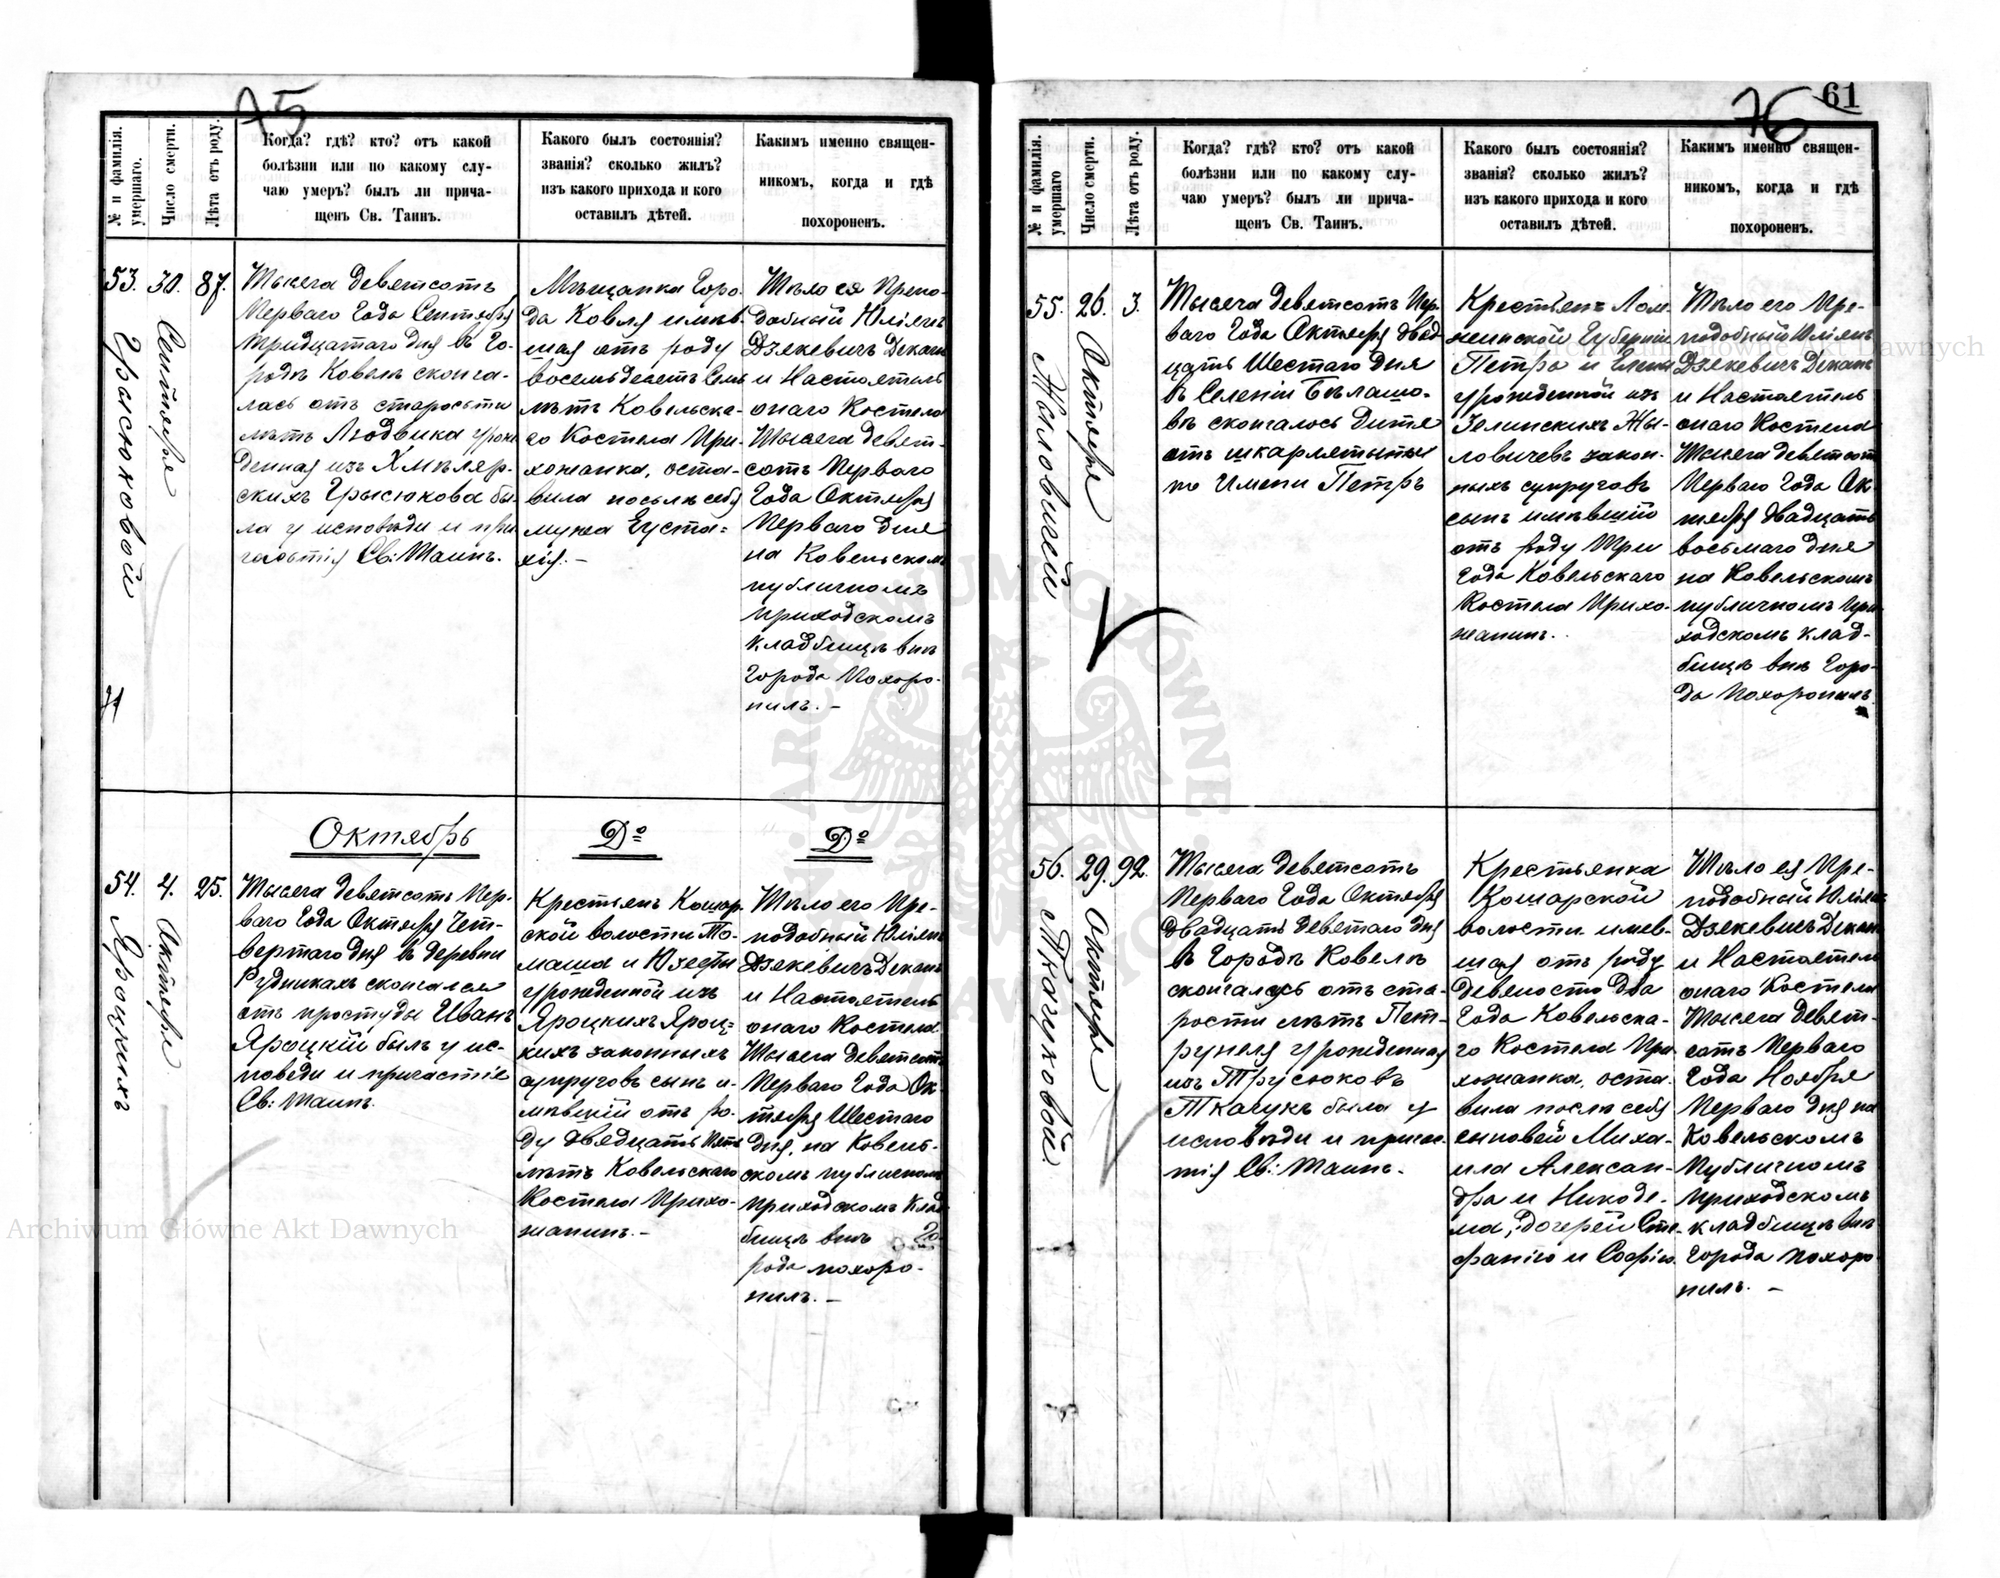 75
№ и фамилія умершаго.
Число смерти.
Лѣта отъ роду.
Когда? гдѣ? кто? отъ какой
болѣзни или по какому слу-
чаю умеръ? былъ ли прича-
щенъ Св. Таинъ.
Какого былъ состоянія?
званія? сколько жилъ?
изъ какого прихода и кого
оставилъ дѣтей.
Какимъ именно священ-
никомъ, когда и гдѣ
похороненъ.
53.
Грысюковой
30.
Сентября
87.
Тысяча девятсотъ
Перваго Года Сентября
тридцатаго дня въ Го-
родѣ Ковелѣ сконча-
лась отъ старости
лѣтъ Людвика урож
денная изъ Хмѣляр-
скихъ Грысюкова бы-
ла у исповѣди и при
частія Св: Таинъ.
Мѣщанка Горо-
да Ковля имѣв-
шая отъ роду
восемьдесятъ Семь
лѣтъ Ковельска-
го Костела При-
хожанка, оста-
вила послѣ себя
мужа Еуста-
хія.-
Тѣло ея Препо-
добный Юліянъ
Дзякевичъ Деканъ
и Настоятель
онаго Костела
Тысяча девят-
сотъ Перваго
Года Октября
Перваго дня
на Ковельскомъ
публичномъ
приходскомъ
кладбищѣ внѣ
города Похоро-
нилъ.-
Октябрь
До
До
54.
Яроцкихъ
4.
Октября
25.
Тысяча девятсотъ Пер-
ваго Года Октября Чет-
вертаго дня въ деревни
Рудникахъ скончался
отъ простуды Иванъ
Яроцкій былъ у ис-
поведи и причастія
Св: Таинъ.
Крестьянъ Кошар-
ской волости То-
маша и Юзефы
урожденной изъ
Яроцкихъ Яроц-
кихъ законныхъ
супруговъ сынъ и-
мѣвшій отъ ро-
ду двадцать Пять
лѣтъ Ковельскаго
Костела Прихо-
жанинъ.-
Тѣло его Пре-
подобный Юліянъ
Дзякевичъ Деканъ
и Настоятель
онаго Костела
Тысяча девятсотъ
Перваго Года Ок-
тября Шестаго
дня, на Ковель-
скомъ публичномъ
приходскомъ Клад
бищѣ внѣ Го-
рода похоро-
нилъ.-
61
76
№ и фамилія умершаго
Число смерти.
Лѣта отъ роду.
Когда? гдѣ? кто? отъ какой
болѣзни или по какому слу-
чаю умеръ? былъ ли прича-
щенъ Св. Таинъ.
Какого былъ состоянія?
званія? сколько жилъ?
изъ какого прихода и кого
оставилъ дѣтей.
Какимъ именно священ-
никомъ, когда и гдѣ
похороненъ.
55.
26.
Октября
3.
Тысяча девятсотъ Пер
ваго Года Октября двад
цать Шестаго дня
въ Селеніи Бѣлашо-
вѣ скончалось Дитя
отъ шкарлятыны
по Имени Петръ
Крестьянъ Лом-
жинской Губерніи
Петра и Елены
урожденной изъ
Зелинскихъ Жы-
ловичевъ закон-
ныхъ супруговъ
сынъ имѣвшій
отъ роду Три
Года Ковельскаго
Костела Прихо-
жанинъ.
Тѣло его Пре-
подобный Юліянъ
Дзякевичъ Деканъ
и Настоятель
онаго Костела
Тысяча девятсотъ
Перваго Года Ок-
тября двадцать
восьмаго дня
на Ковельскомъ
публичномъ При
ходскомъ клад-
бищѣ внѣ Горо-
да Похоронилъ
56.
Ткачуковой
29.
Октября
92.
Тысяча девятсотъ
Перваго Года Октября
двадцать девятаго дня
въ Городѣ Ковелѣ
скончалась отъ ста-
рости лѣтъ Пет-
рунеля урожденная
изъ Трусюковъ
Ткачукъ была у
исповѣди и причас-
тія Св: Таинъ.
Крестьянка
Кошарской
волости имев-
шая отъ роду
девяносто два
Года Ковельска-
го Костела При
хожанка, оста-
вила послѣ себя
сыновей Миха-
ила Алексан-
дра и Никоде-
ма, дочерей Сте-
фанію и Софію.
Тѣло ея Пре-
подобный Юліянъ
Дзякевичъ Деканъ
и Настоятель
онаго Костела
Тысяча девят-
сотъ Перваго
Года Ноября
Перваго дня на
Ковельскомъ
Публичномъ
приходскомъ
кладбищѣ внѣ
города похоро-
нилъ.-
Archiwum Główne Akt Dawnych
Archiwum Główne Akt Dawnych
ARCHIWUM GŁÓWNE AKT DAWNYCH